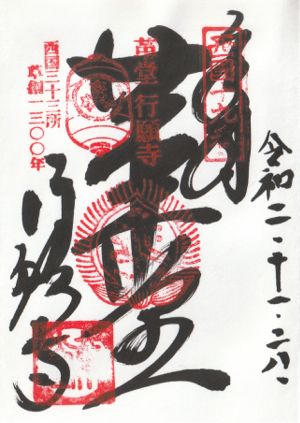 令和二・十一・二八
奉拝
西国十九番
革堂
革堂行願寺
行願寺
西国三十三所
草創一三〇〇年